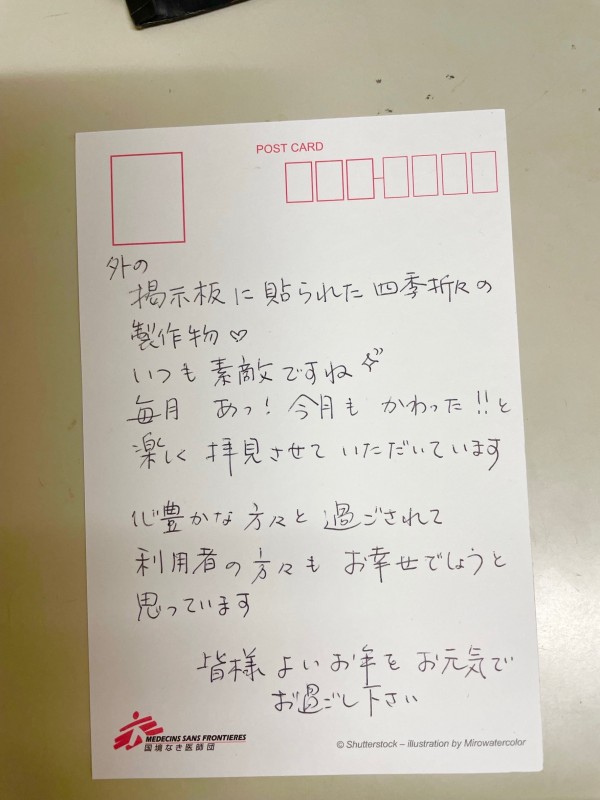 POST CARD
外の
掲示板に貼られた四季折々の
製作物♡
いつも素敵ですね
毎月 あっ!今月も かわった!!と
楽しく 拝見させて いただいています
心豊かな方々と過ごされて
利用者の方々も お幸せでしょうと
思っています
皆様 よいお年を お元気で
お過ごし下さい
MEDECINS SANS FRONTIERES
国境なき医師団
© Shutterstock – illustration by Mirowatercolor